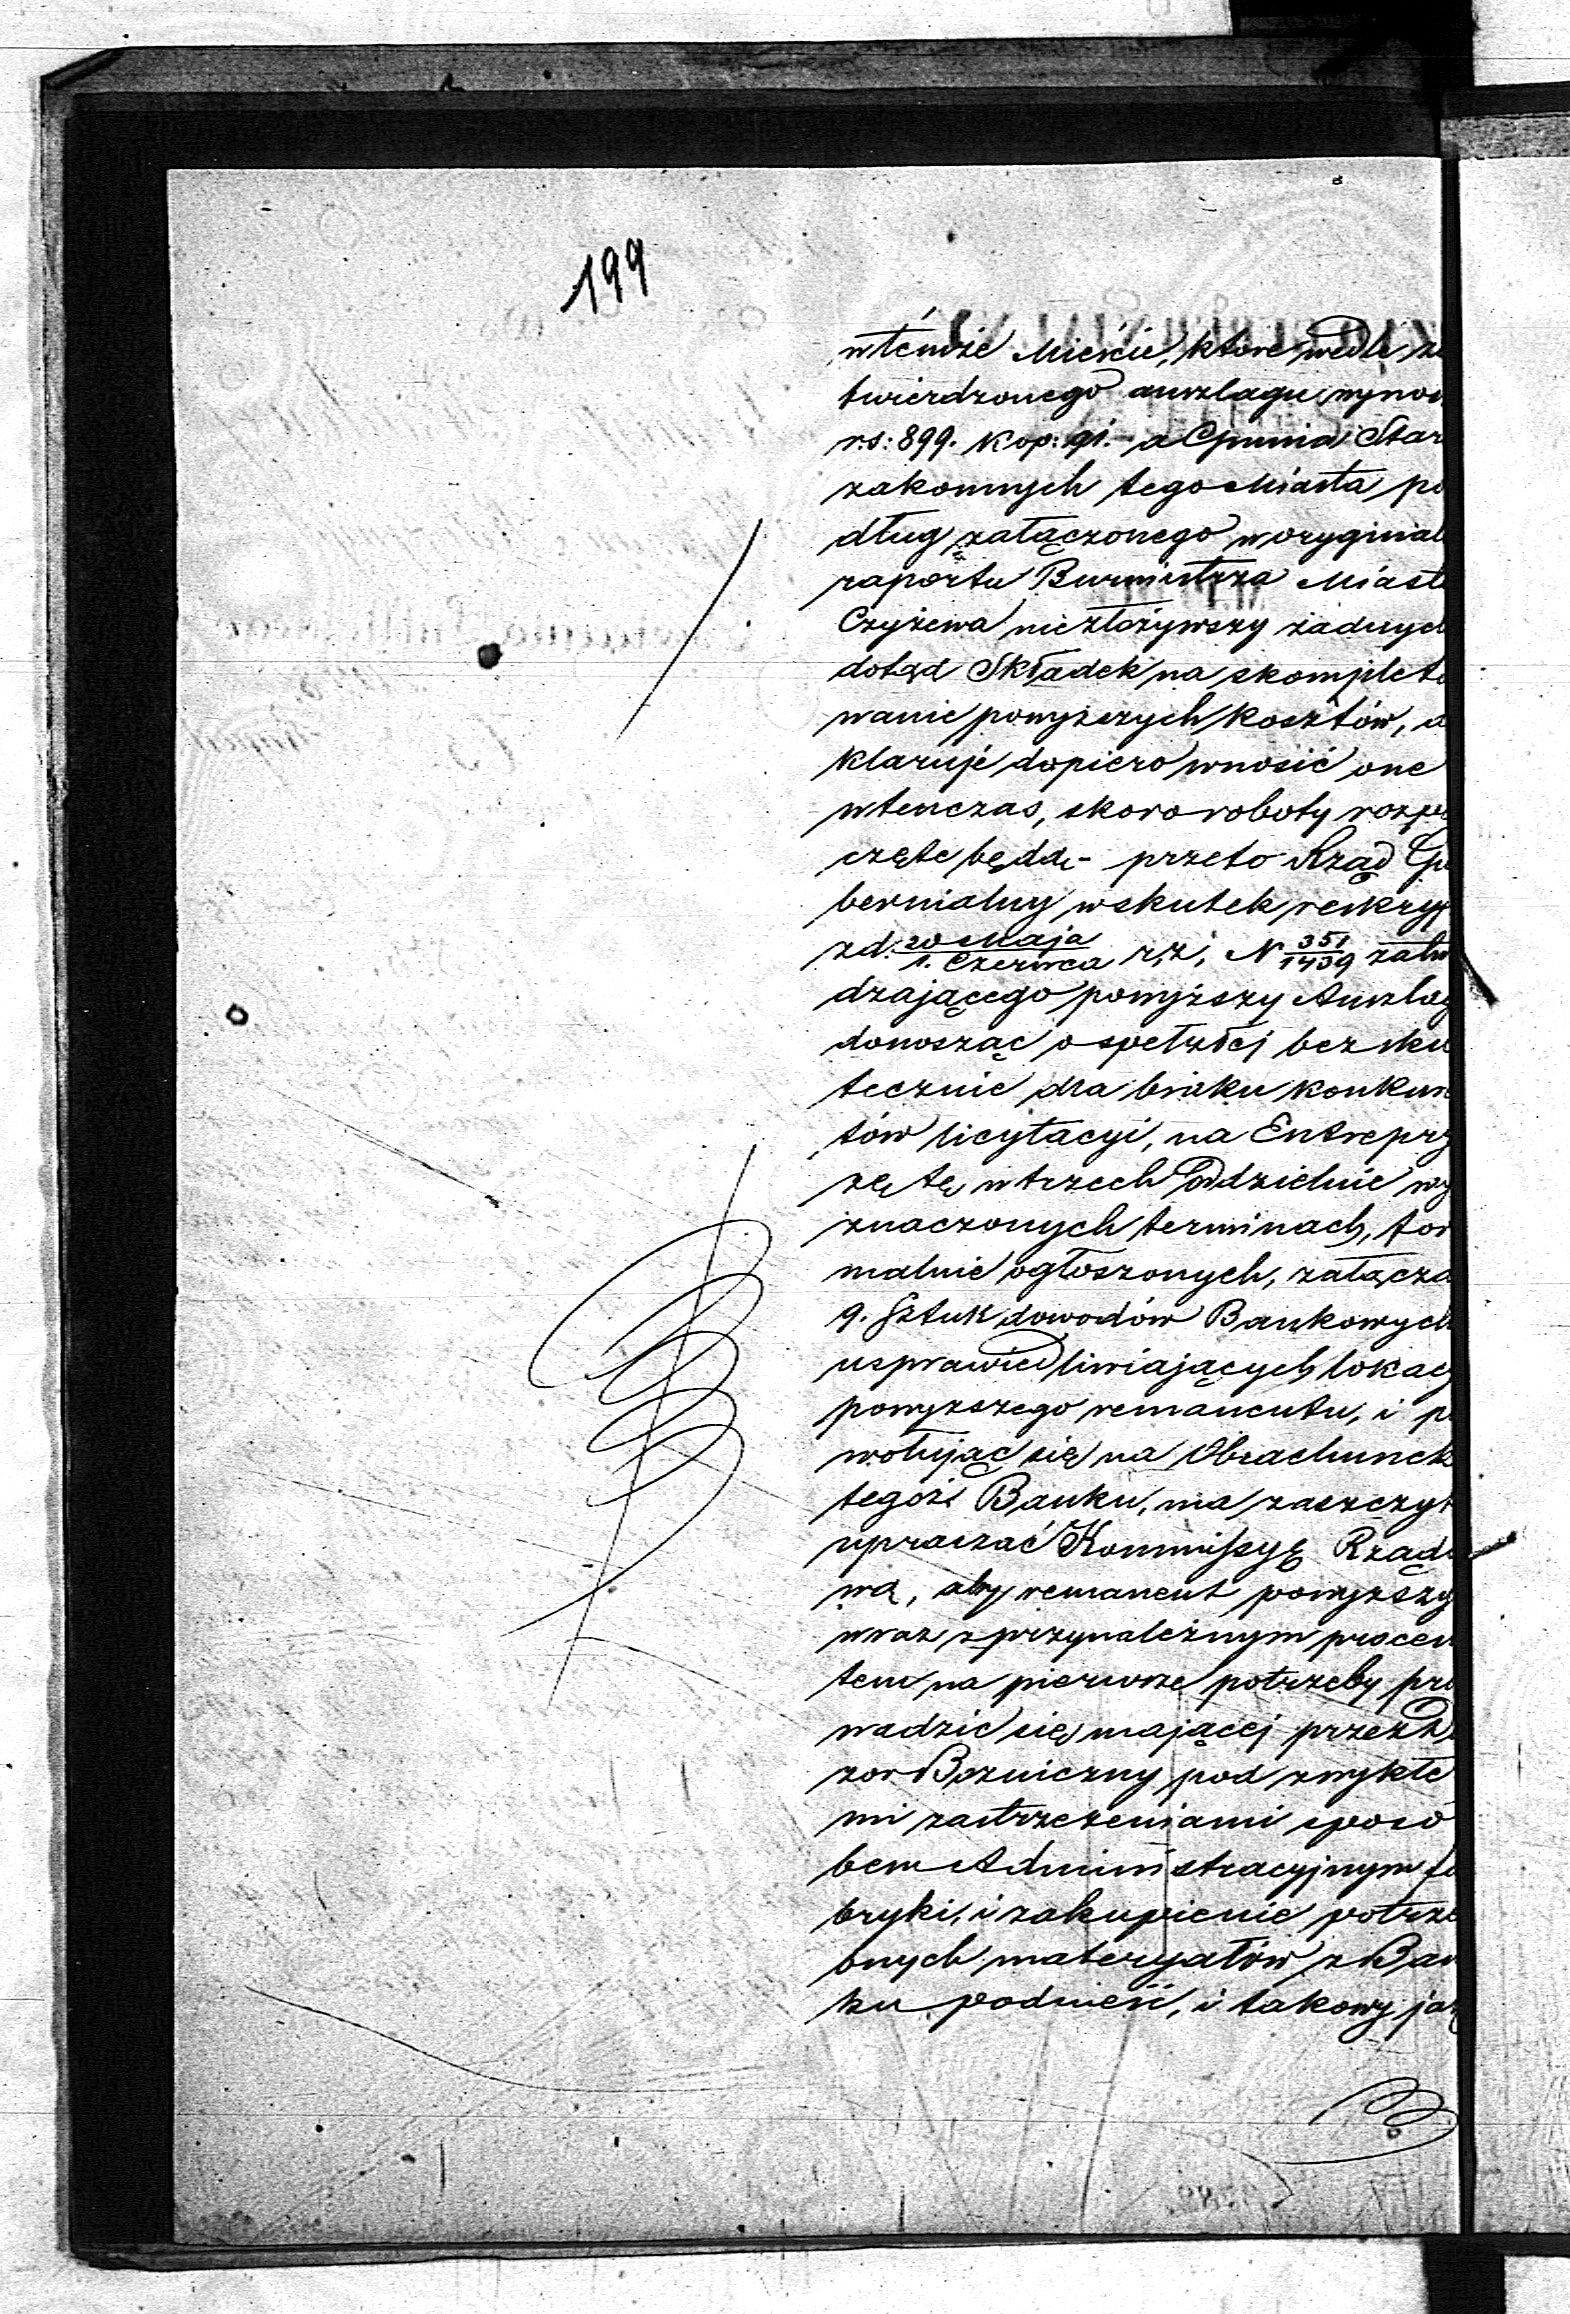 199
wtémże Mieście, które wedle za
twierdzonego anszlagu wynos
rs: 899. kop: 91. – a Gmina Star
zakonnych tego Miasta po
dług załączonego w oryginal
raportu Burmistrza Miasta
Czyżewa nie złożywszy żadnych
dotąd Składek na skompleto
wanie powyższych kosztów, d
klaruje dopiero wnosić one
wtenczas, skoro roboty rozpo
częte będą – przeto Rząd Gu
bernialny wskutek reskryp
zd. 20 Maja / 1. Czerwca r. z. N 351/1439 zatw
dzającego powyższy Anszlag
donosząc o spełzłej bezsku
tecznie dla braku konkuren
tów licytacyi, na Entrepry
zę tę w trzech oddzielnie wy
znaczonych terminach, for
malnie ogłoszonych, załącza
9. Sztuk dowodów Bankowych
usprawiedliwiających lokacy
powyższego remanentu, i po
wołując się na Obrachunek
tegoż Banku, ma zaszczyt
upraszać Kommissyę Rządo
wą, aby remanent powyższy
wraz z przynależnym procen
tem na pierwsze potrzeby pro
wadzić się mającej przez D
zor Bozniczny pod zwykłe
mi zastrzeżeniami sposo
bem Administracyjnym fa
bryki, i zakupienie potrze
bnych materyałów z Ban
ku podnieść, i takowy jak